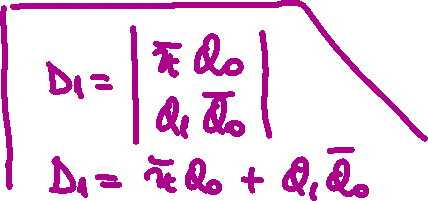 D₁ = | x̄ Q₀ |
| Q₁ Q̄₀ |
D₁ = x̄ Q₀ + Q₁ Q̄₀